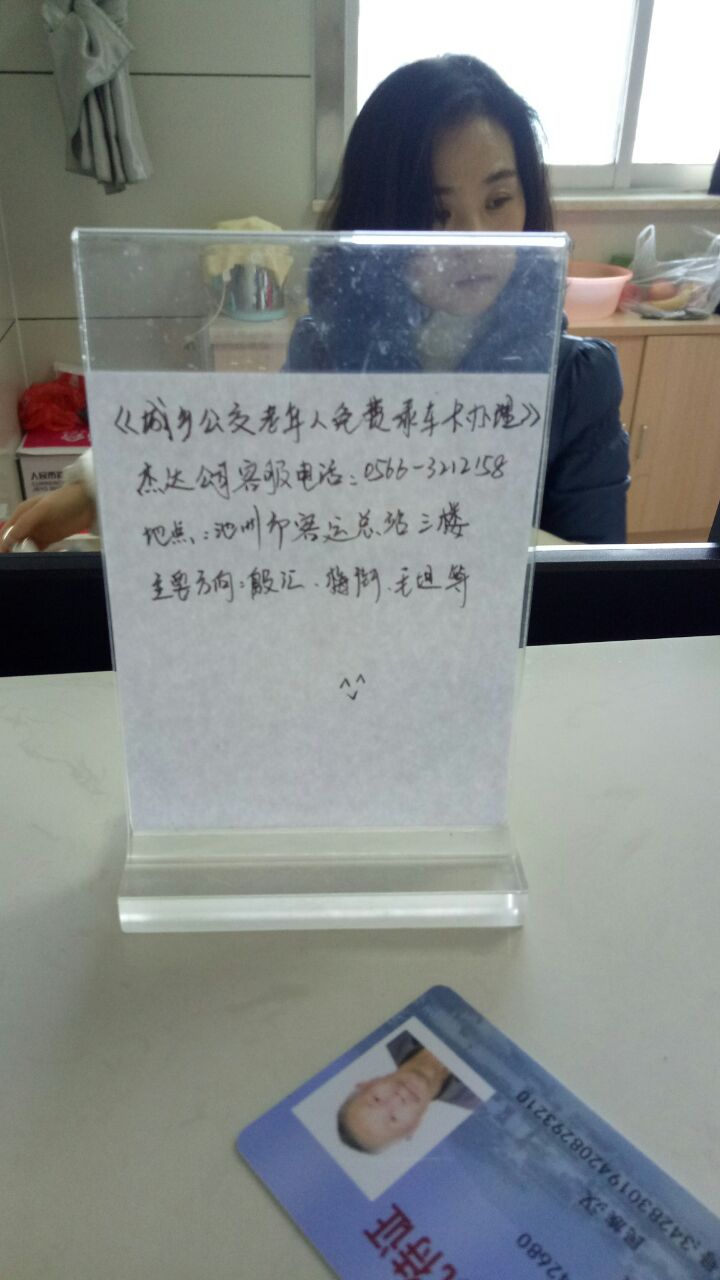 《城乡公交老年人免费乘车卡办理》
杰达公司客服电话：0566-3212158
地点：池州市客运总站三楼
主要方向：殷汇、梅街、毛坦等
人民币
待证
民族：汉
342830194208293210
42680